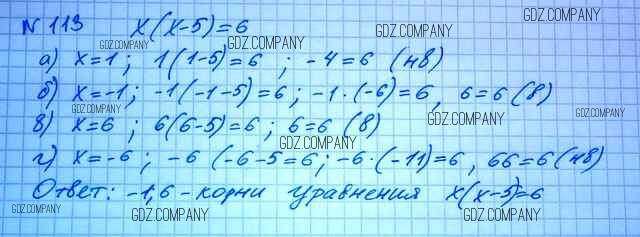 № 113 x(x-5)=6
а) x=1; 1(1-5)=6; -4=6 (нв)
б) x=-1; -1(-1-5)=6; -1·(-6)=6, 6=6 (в)
в) x=6; 6(6-5)=6; 6=6 (в)
г) x=-6; -6(-6-5=6; -6·(-11)=6, 66=6 (нв)
Ответ: -1,6 - корни уравнения x(x-5)=6
GDZ.COMPANY
GDZ.COMPANY
GDZ.COMPANY
GDZ.COMPANY
GDZ.COMPANY
GDZ.COMPANY
GDZ.COMPANY
GDZ.COMPANY
GDZ.COMPANY
GDZ.COMPANY
GDZ.COMPANY
GDZ.COMPANY